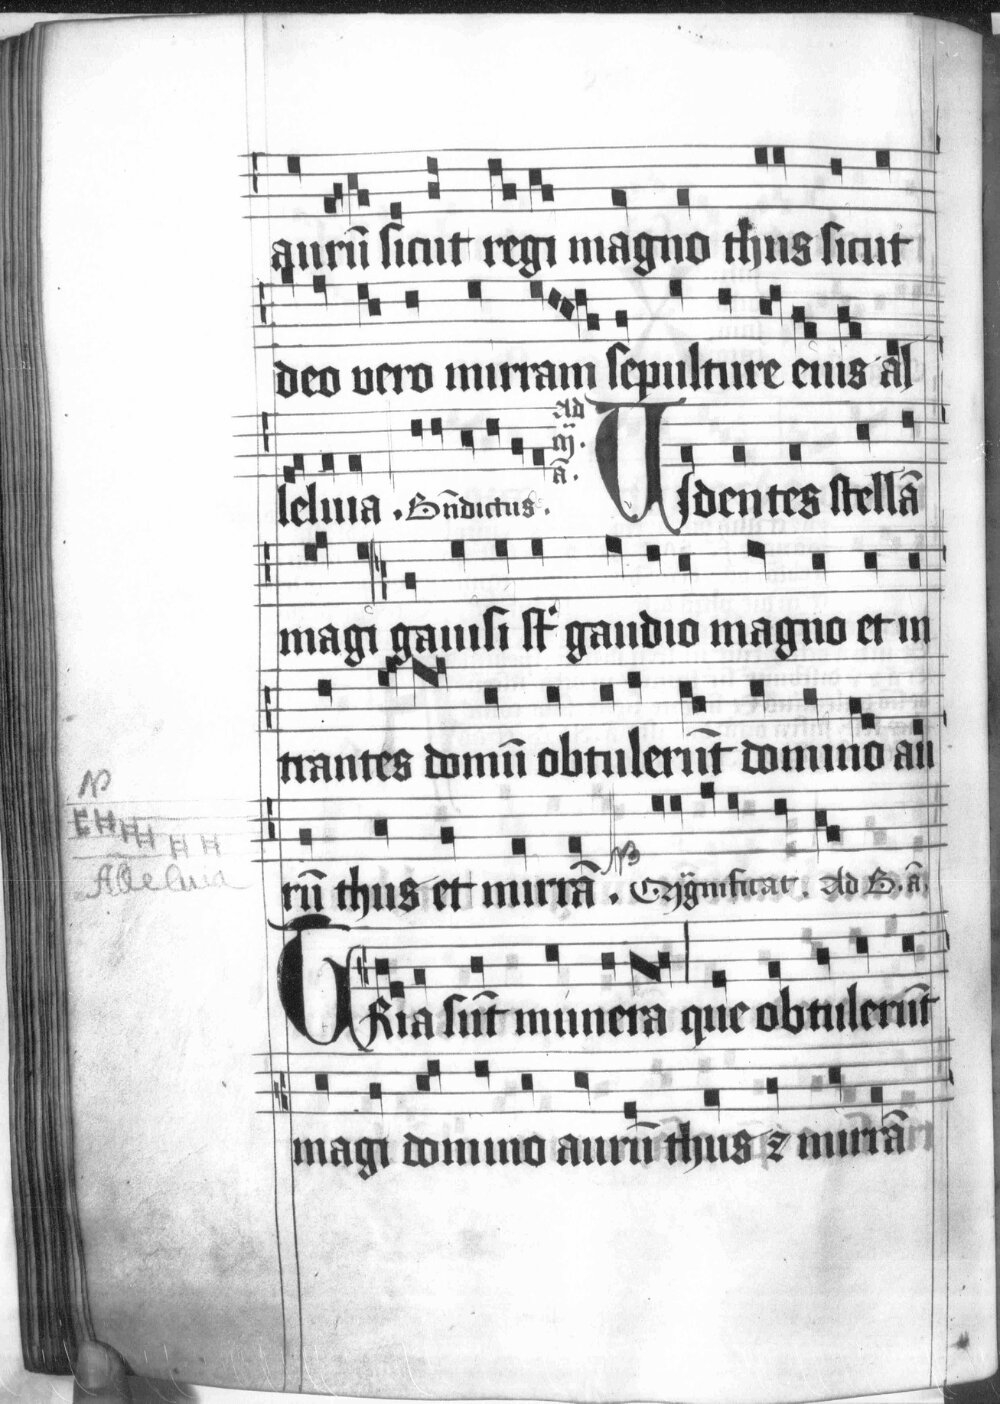 aurū sicut regi magno thus sicut
deo vero mirram sepulture eius al
leluia . Bn̄dictus . ad
m̄ .
ā .
Videntes stellā
magi gauisi st̄ gaudio magno et in
trantes domū obtulerūt domino au
NB
rū thus et mirrā . NB Mḡnificat . Ad B . ā .
Alleluia
Tria sūt munera que obtulerūt
magi domino aurū thus ⁊ mirrā